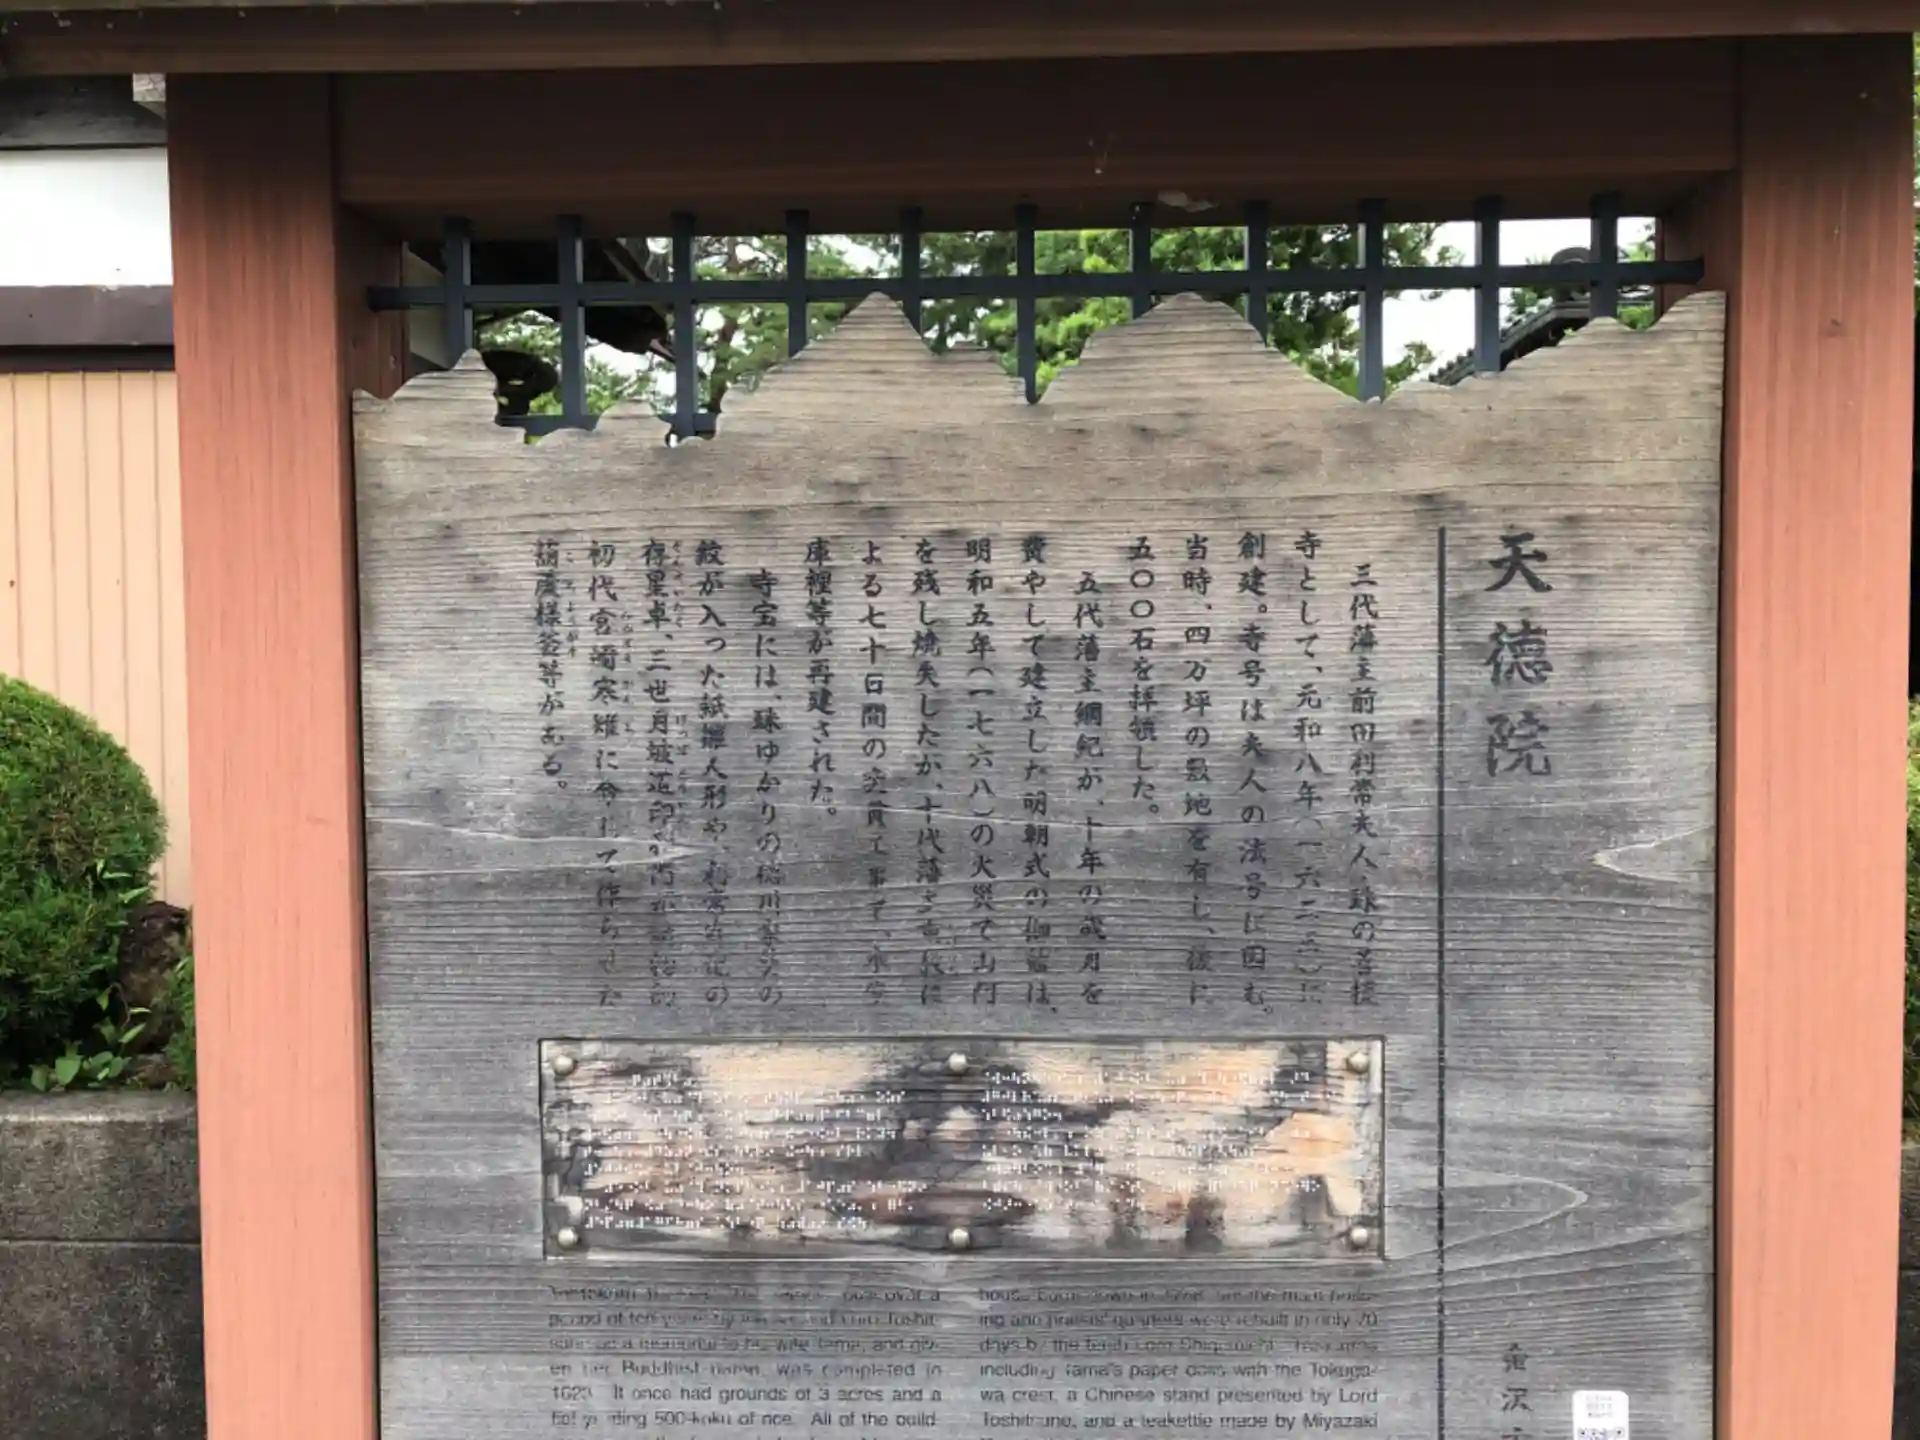 天徳院
三代藩主前田利常夫人・珠の菩提
寺として、元和八年(一六二三)に
創建。寺号は夫人の法号に因む。
当時、四万坪の敷地を有し、後に
五〇〇石を拝領した。
五代藩主綱紀が、十年の歳月を
費やして建立した明朝式の伽藍は、
明和五年(一七六八)の火災で山門
を残し焼失したが、十代藩主重教に
よる七十日間の突貫工事で、本堂
庫裡等が再建された。
寺宝には、珠ゆかりの徳川家葵の
紋が入った紙雛人形や、利常寄進の
存星卓、三世月坡道印が
初代宮﨑寒雉に命じて作らせた
葫蘆様釜等がある。
金沢
period of ten years by
as a memorial to his wife Tama, and giv-
en her Buddhist name, was completed in
1623. It once had grounds of 3 acres and a
500-koku of rice. All of the build-
house burnt down in 1768, the main build-
ing and priests' quarters were rebuilt in only 70
days by the tenth Lord
including Tama's paper dolls with the Tokuga-
wa crest, a Chinese stand presented by Lord
Toshitsune, and a teakettle made by Miyazaki